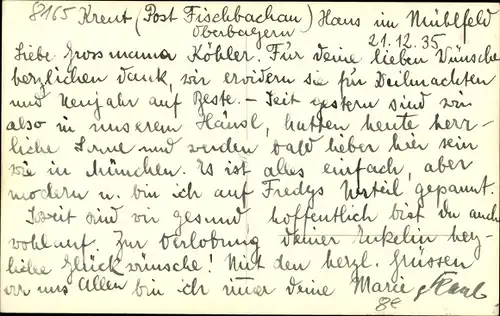 8165 Kreut (Post Fischbachau) Haus im Mühlfeld
Oberbayern
21.12.35
Liebe Grossmama Köhler. Für deine lieben Wünsche
herzlichen Dank, wir erwidern sie für Weihnachten
und Neujahr auf Beste. – Seit gestern sind wir
also in unserem Häusl, hatten heute herr-
liche Sonne und werden bald lieber hier sein
wie in München. Es ist alles einfach, aber
modern u. bin ich auf Fredys Urteil gespannt.
Soweit sind wir gesund hoffentlich bist du auch
wohlauf. Zur Verlobung deiner Enkelin herz-
liche Glückwünsche! Mit den herzl. Grüssen
von uns Allen bin ich immer deine Marie
8€